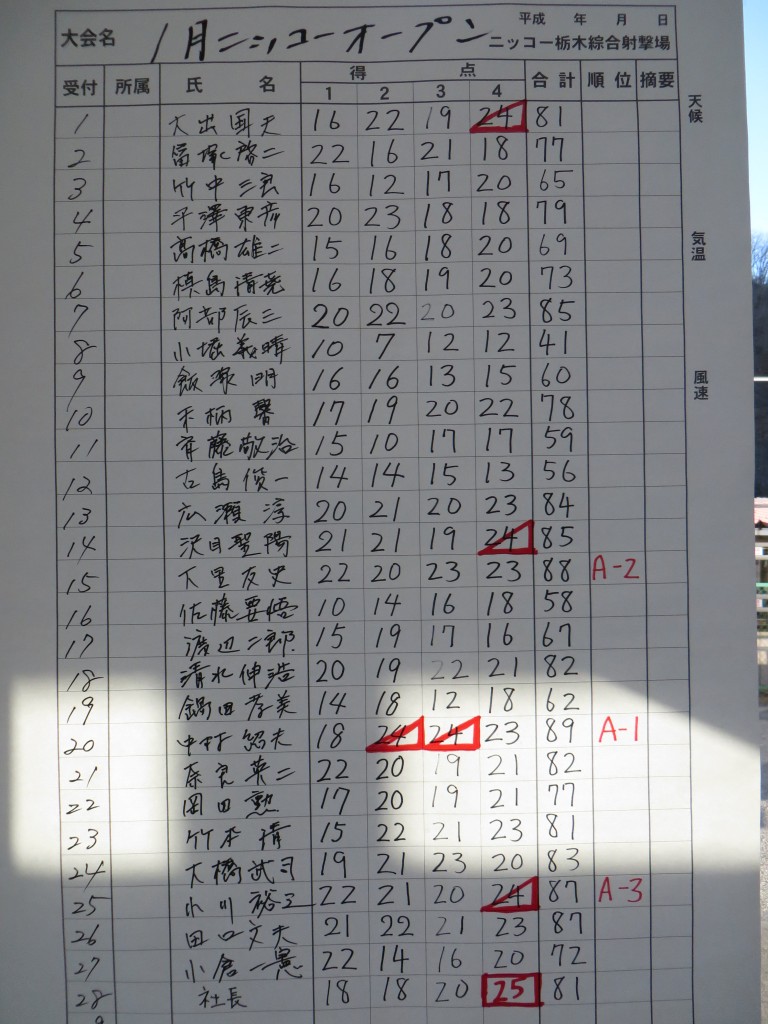 平成 年 月 日
大会名 1月ニッコーオープン ニッコー栃木綜合射撃場
受付 所属 氏名 得点 合計 順位 摘要
1 2 3 4
天候
気温
風速
1 大出国夫 16 22 19 24 81
2 冨塚啓二 22 16 21 18 77
3 竹中三 16 12 17 20 65
4 平澤東彦 20 23 18 18 79
5 高橋雄二 15 16 18 20 69
6 槙島清尭 16 18 19 20 73
7 阿部辰三 20 22 20 23 85
8 小堀義晴 10 7 12 12 41
9 飯濵明 16 16 13 15 60
10 馨 17 19 20 22 78
11 斉藤敬治 15 10 17 17 59
12 古島俊一 14 14 15 13 56
13 広瀬淳 20 21 20 23 84
14 沢目聖陽 21 21 19 24 85
15 大里友史 22 20 23 23 88 A-2
16 佐藤要悟 10 14 16 18 58
17 渡辺二郎 15 19 17 16 67
18 清水伸浩 20 19 22 21 82
19 鍋田孝美 14 18 12 18 62
20 中村紹夫 18 24 24 23 89 A-1
21 奈良英二 22 20 19 21 82
22 岡田勲 17 20 19 21 77
23 竹本清 15 22 21 23 81
24 大橋武司 19 21 23 20 83
25 小川裕之 22 21 20 24 87 A-3
26 田口文夫 21 22 21 23 87
27 小倉一憲 22 14 16 20 72
28 社長 18 18 20 25 81